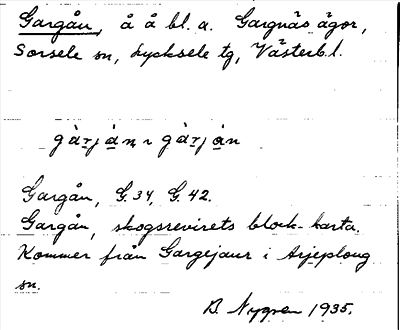 Gargån, å å bl. a. Gargnäs ägor,
Sorsele sn, Lycksele tg, Västerb. l.
gàrján ~ gàrján
Gargån, G. 34, G. 42.
Gargån, skogsrevirets block-karta.
Kommer från Gargejaur i Arjeplog
sn.
B. Nygren 1935.